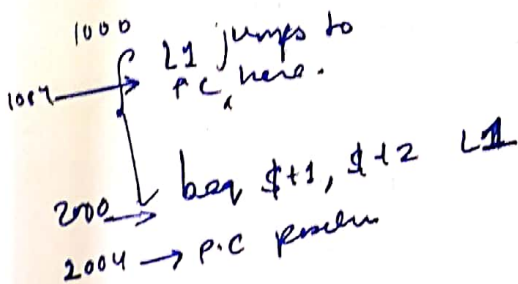 1000
L1 jumps to
1084 PC, here.
2000 beq $t1, $t2 L1
2004 → P.C